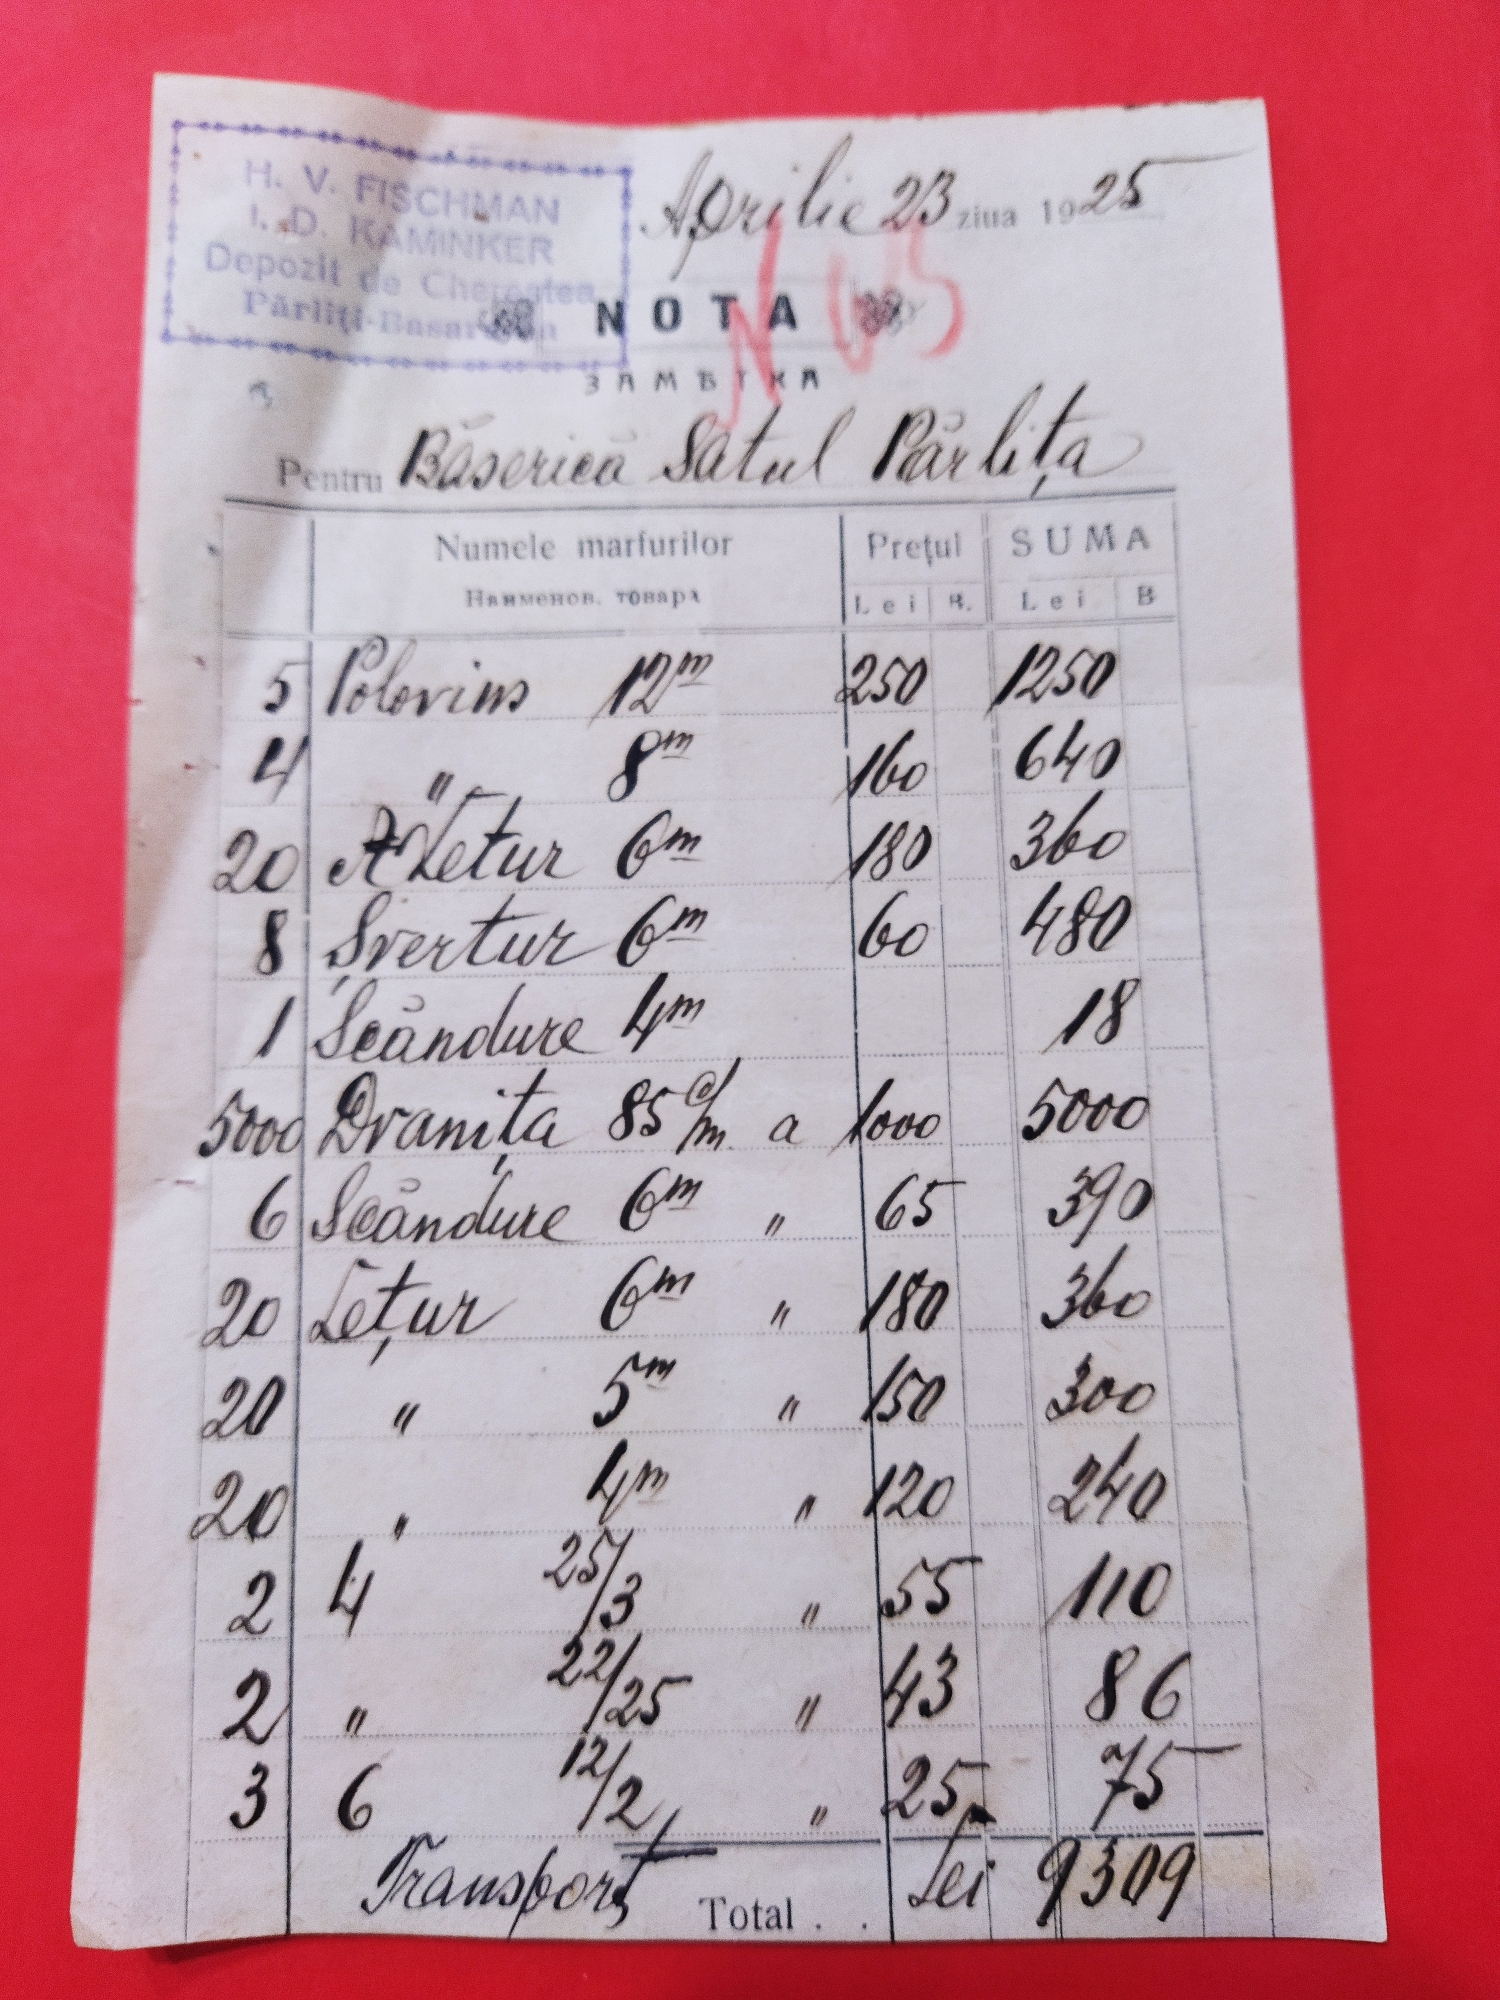 H. V. FISCHMAN
I. D. KAMINKER
Depozit de Cherestea
Pârliți-Basarabia
Aprilie 23 ziua 1925
NOTA
ЗАМѢТКА
Pentru Băserică Satul Pârlița
Numele marfurilor Prețul SUMA
Наименов. товара Lei B. Lei B
5 Polovins 12m 250 1250
4 " 8m 160 640
20 Lețur 6m 180 360
8 Șvertur 6m 60 480
1 Scândure 4m 18
5000 Dranița 85 c/m a 1000 5000
6 Scândure 6m " 65 390
20 Lețur 6m " 180 360
20 " 5m " 150 300
20 " 4m " 120 240
2 4 25/3 " 55 110
2 " 22/25 " 43 86
3 6 12/2 " 25 75
Transport Total . . Lei 9309